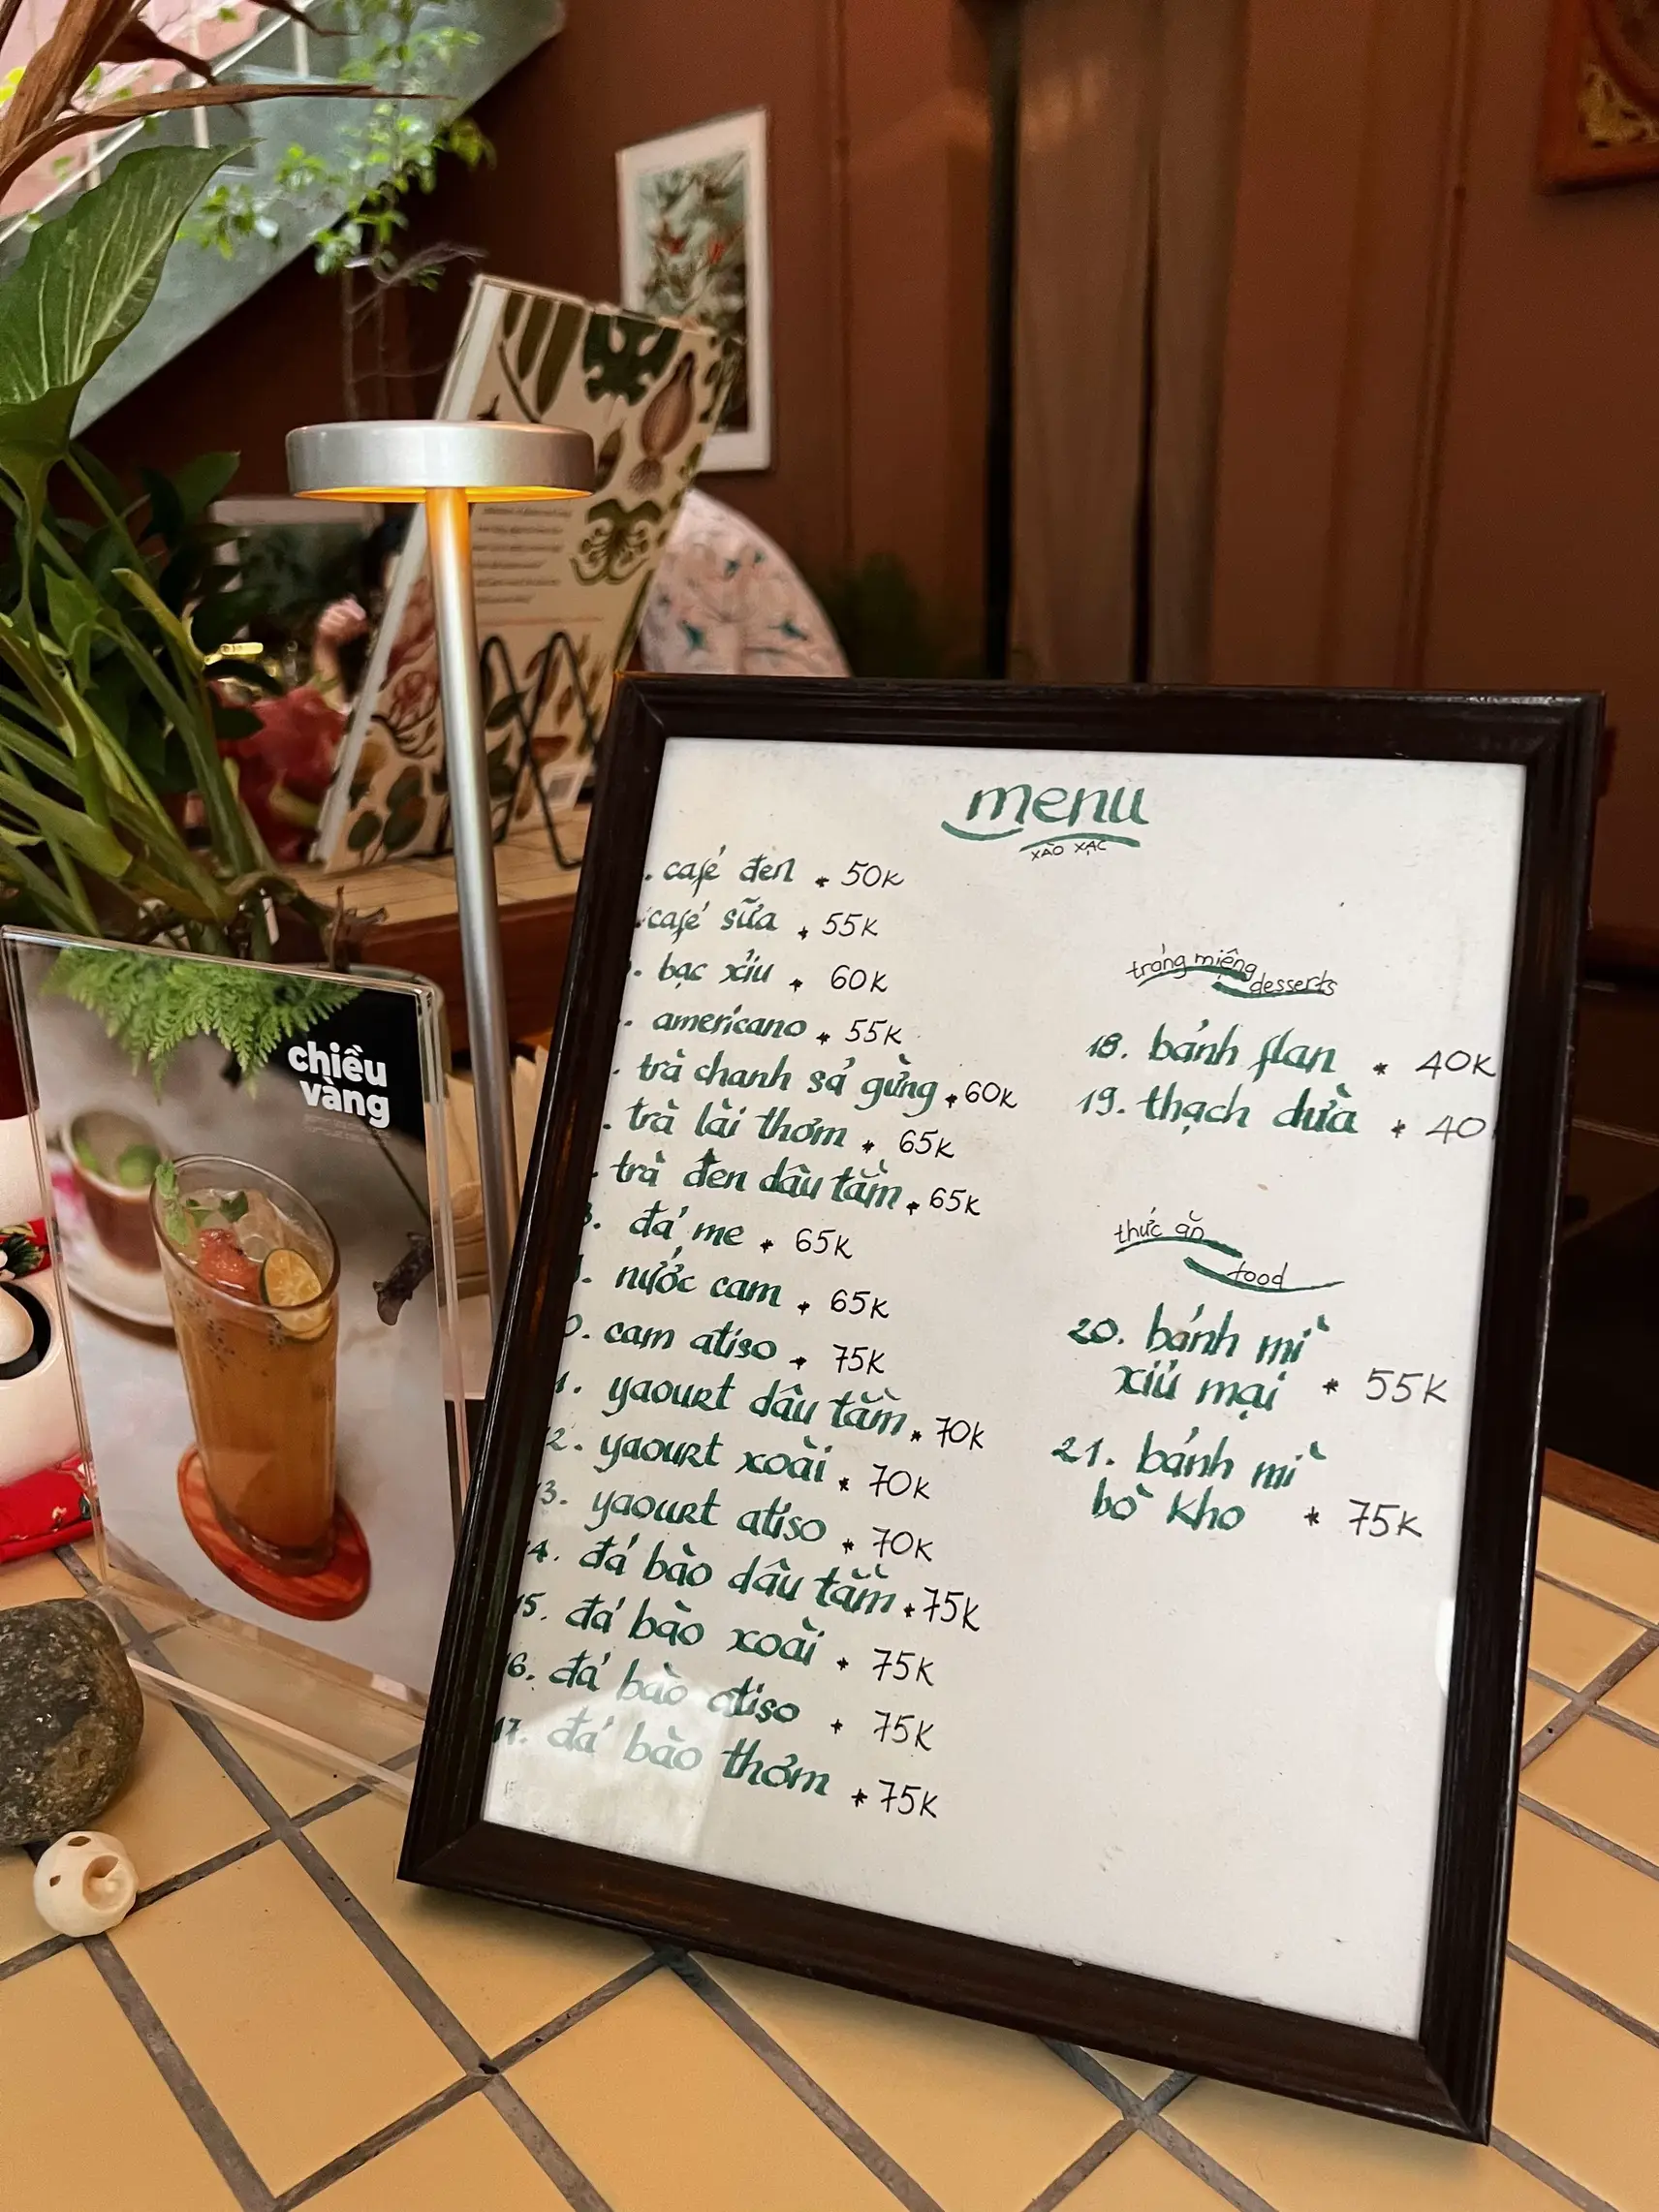 menu
xào xạc
. café đen * 50K
. café sữa * 55K
. bạc xỉu * 60K
. americano * 55K
. trà chanh sả gừng * 60K
. trà lài thơm * 65K
. trà đen dâu tằm * 65K
. đá me * 65K
. nước cam * 65K
0. cam atiso * 75K
1. yaourt dâu tằm * 70K
2. yaourt xoài * 70K
3. yaourt atiso * 70K
4. đá bào dâu tằm * 75K
15. đá bào xoài * 75K
16. đá bào atiso * 75K
17. đá bào thơm * 75K
tráng miệng
desserts
18. bánh flan * 40K
19. thạch dừa * 40
thức ăn
food
20. bánh mì
xíu mại * 55K
21. bánh mì
bò kho * 75K
chiều
vàng